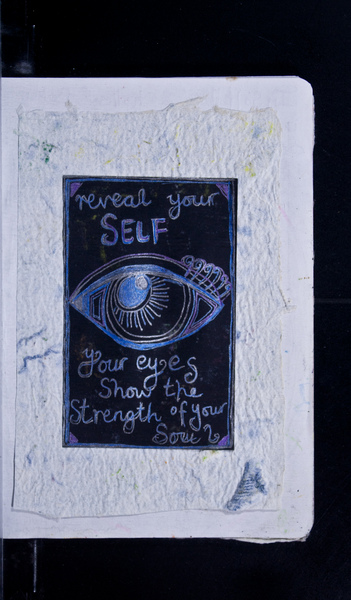 reveal your
SELF
your eyes
Show the
Strength of your
Soul